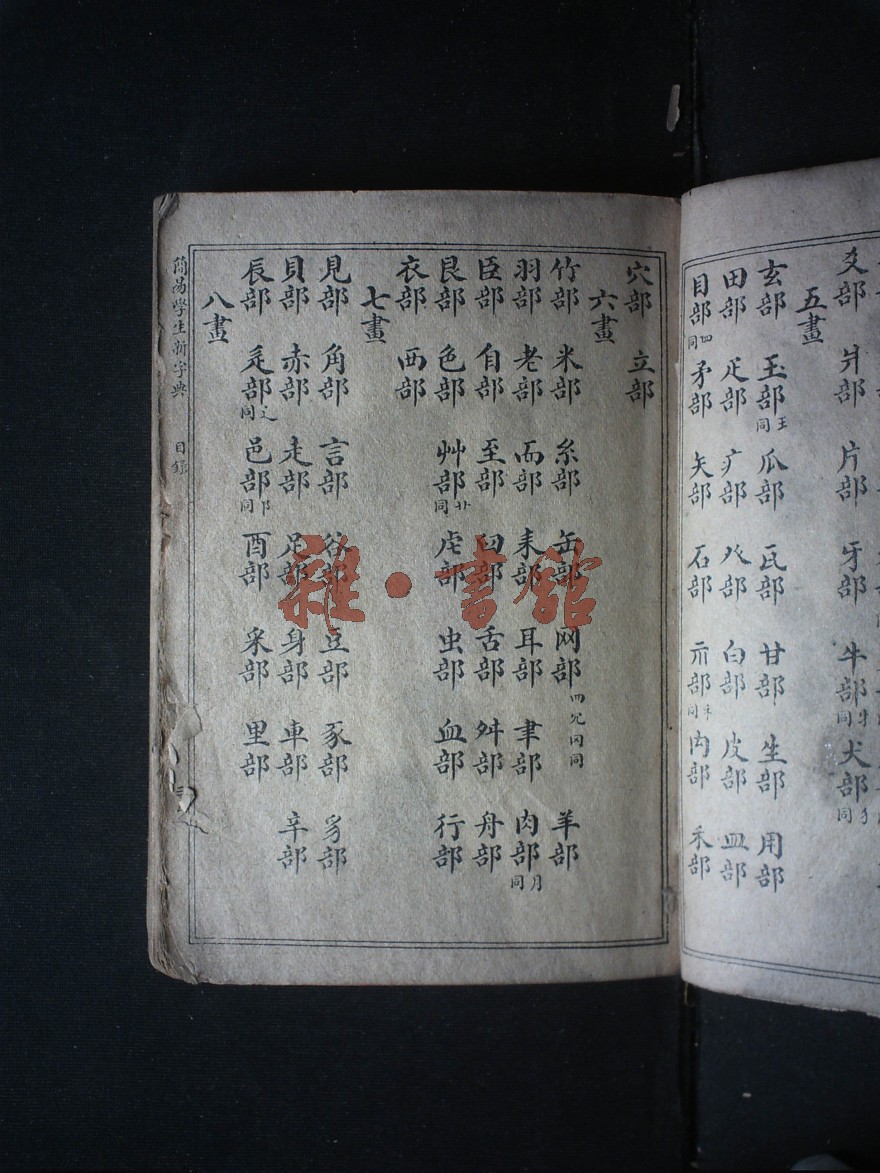 爻部 爿部 片部 牙部 牛部牜同 犬部犭同
五畫
玄部 玉部王同 瓜部 瓦部 甘部 生部 用部
田部 疋部 疒部 癶部 白部 皮部 皿部
目部罒同 矛部 矢部 石部 示部礻同 禸部 禾部
穴部 立部
六畫
竹部 米部 糸部 缶部 网部罒㓁同冈同 羊部
羽部 老部 而部 耒部 耳部 聿部 肉部月同
臣部 自部 至部 臼部 舌部 舛部 舟部
艮部 色部 艸部艹同 虍部 虫部 血部 行部
衣部 襾部
七畫
見部 角部 言部 谷部 豆部 豕部 豸部
貝部 赤部 走部 足部 身部 車部 辛部
辰部 辵部辶同 邑部阝同 酉部 釆部 里部
八畫
簡易學生新字典 目錄
雜·書館